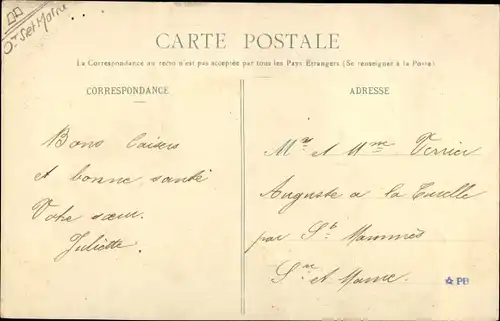 Ot Set Marne
CARTE POSTALE
La Correspondance au recto n'est pas acceptée par tous les Pays Étrangers (Se renseigner à la Poste)
CORRESPONDANCE
ADRESSE
Bons baisers
et bonne santé
Votre sœur.
Juliette
Mr et Mme Verrier
Auguste a la Tuelle
par St Mammès
Sne et Marne.
PB